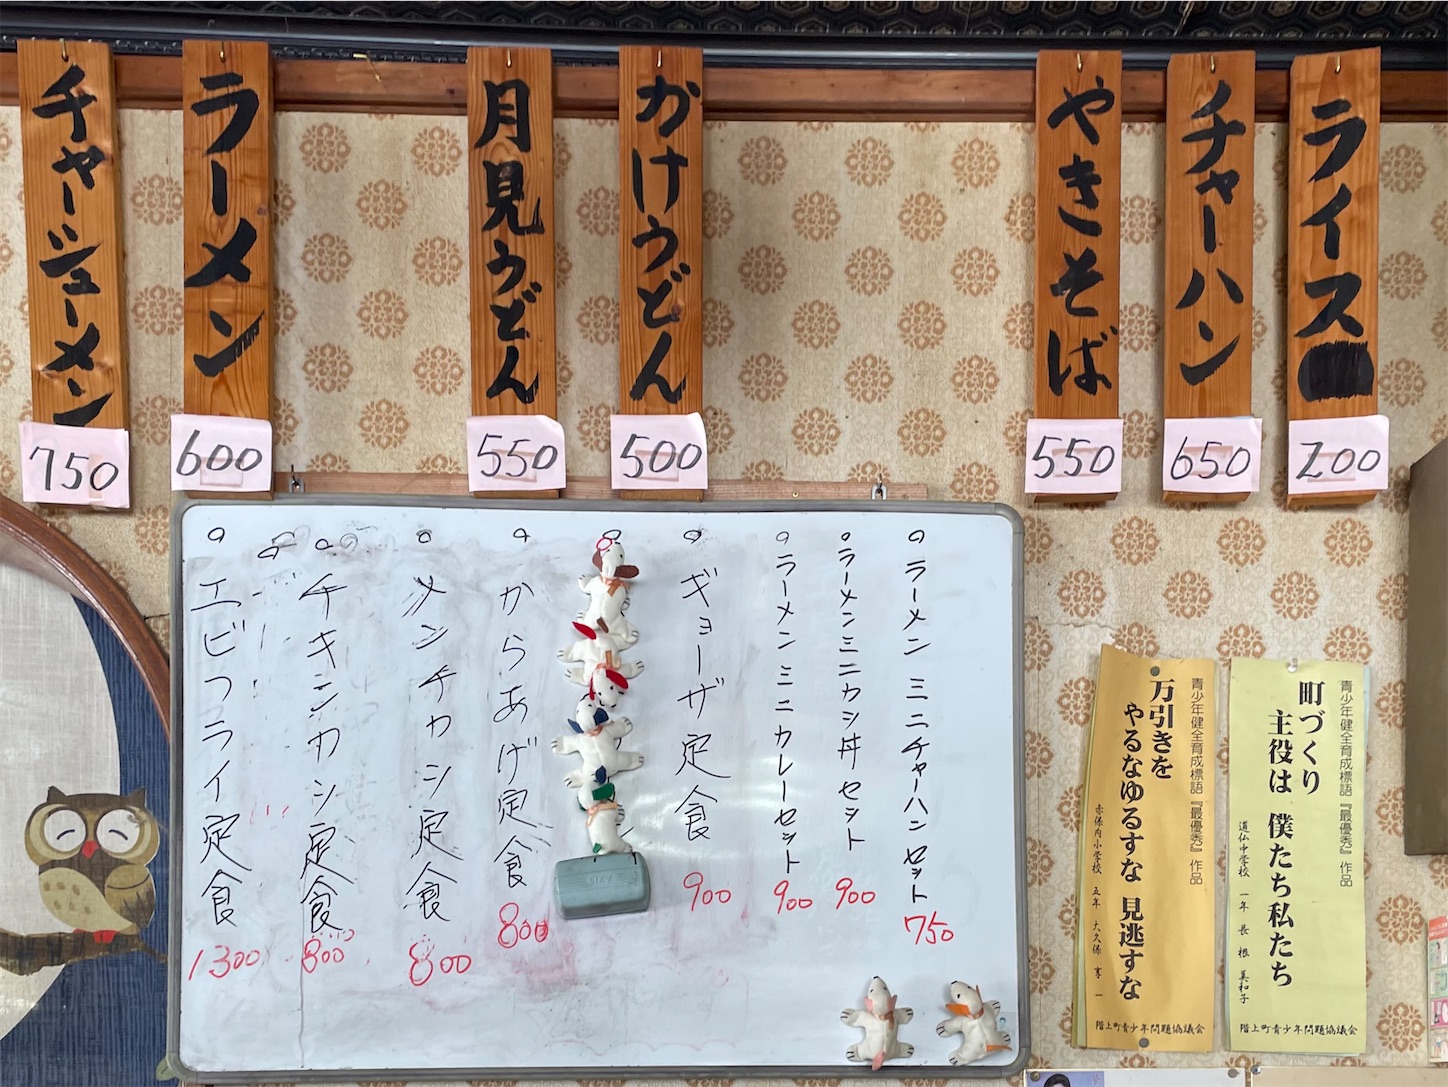 ライス
200
チャーハン
650
やきそば
550
かけうどん
500
月見うどん
550
ラーメン
600
チャーシューメン
750
ラーメン ミニチャーハンセット
750
ラーメンミニカツ丼セット
900
ラーメンミニカレーセット
900
ギョーザ定食
900
からあげ定食
800
メンチカツ定食
800
チキンカツ定食
800
エビフライ定食
1300
青少年健全育成標語『最優秀』作品
町づくり
主役は 僕たち私たち
道仏中学校 一年 長根 美和子
階上町青少年問題協議会
青少年健全育成標語『最優秀』作品
万引きを
やるなゆるすな 見逃すな
赤保内小学校 五年 大久保 享一
階上町青少年問題協議会